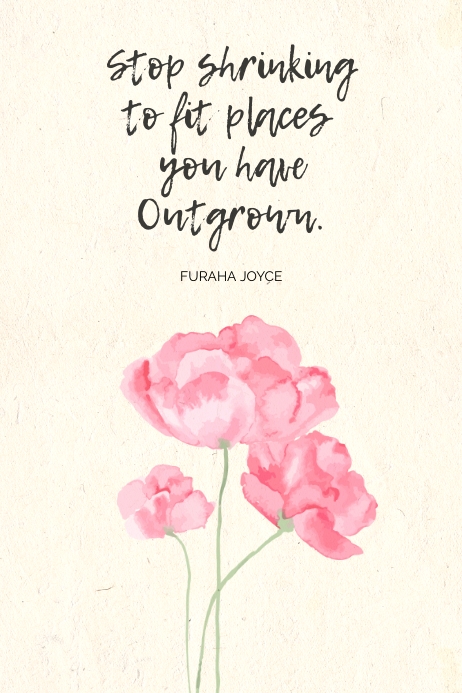 Stop shrinking
to fit places
you have
Outgrown.
FURAHA JOYCE